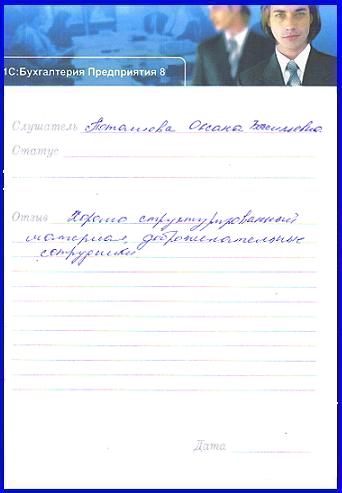 1С:Бухгалтерия Предприятия 8
Слушатель Оксана
Статус
Отзыв Хорошо структурированный
материал, доброжелательные
сотрудники
Дата